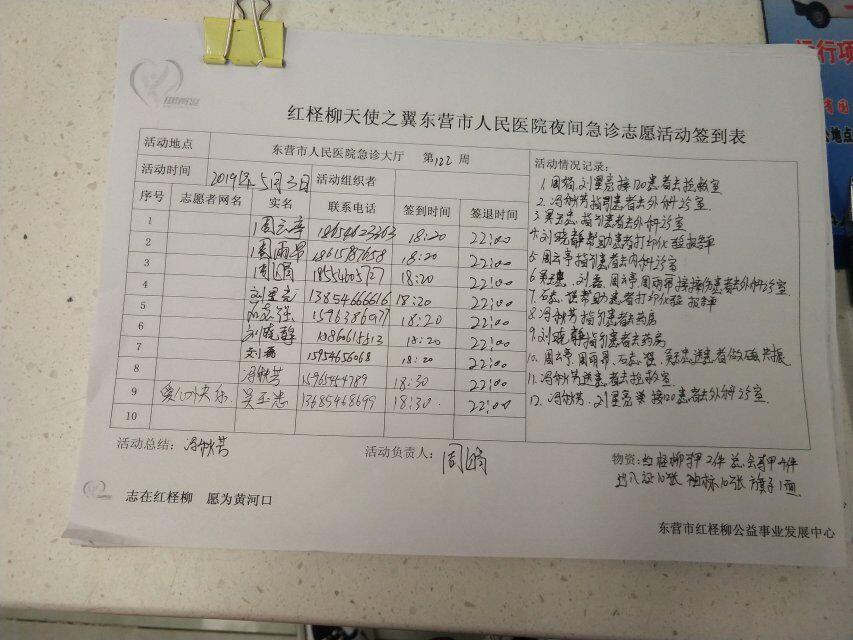 红柽柳天使之翼东营市人民医院夜间急诊志愿活动签到表
活动地点 东营市人民医院急诊大厅 第122周
活动时间 2019年5月3日 活动组织者
序号 志愿者网名 实名 联系电话 签到时间 签退时间
1 周云亭 18:20 22:00
2 周雨昂 18615787658 18:20 22:00
3 周娟 18:20 22:00
4 刘星亮 13854666616 18:20 22:00
5 石志强 18:20 22:00
6 刘晓静 18:20 22:00
7 刘磊 15954656068 18:20 22:00
8 冯秋芳 15965454789 18:30 22:00
9 爱心快乐 吴玉忠 13685468699 18:30 22:00
10
活动情况记录:
1.周娟、刘星亮接120患者去抢救室
2.冯秋芳指引患者去外科诊室
3.吴玉忠指引患者去外科诊室
4.刘晓静帮助患者打印化验报告单
5.周云亭指引患者去内科诊室
6.吴玉忠、刘磊、周云亭、周雨昂接挫伤患者去外科诊室
7.石志强帮助患者打印化验报告单
8.冯秋芳指引患者去药房
9.刘晓静指引患者去药房
10.周云亭、周雨昂、石志强、吴玉忠送患者做磁共振
11.冯秋芳送患者去抢救室
12.冯秋芳、刘星亮接120患者去外科诊室
活动总结:冯秋芳 活动负责人:周娟
物资:红柽柳马甲2件
袖标10张 旗子1面
志在红柽柳 愿为黄河口
东营市红柽柳公益事业发展中心